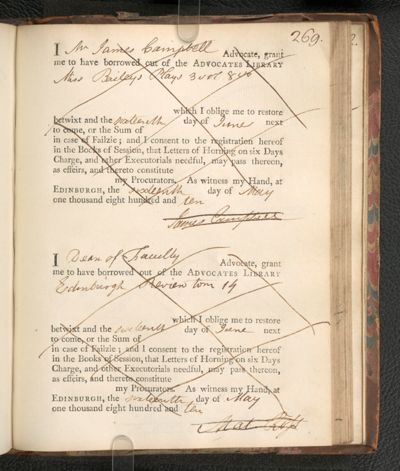 269.
I Mr James Campbell Advocate, grant
me to have borrowed out of the ADVOCATES LIBRARY
Miss Baileys Plays 3 vol 8vo
which I oblige me to restore
betwixt and the sixteenth day of June next
to come, or the Sum of
in case of Failzie; and I consent to the registration hereof
in the Books of Session, that Letters of Horning on six Days
Charge, and other Executorials needful, may pass thereon,
as effeirs, and thereto constitute
my Procurators. As witness my Hand, at
EDINBURGH, the sixteenth day of May
one thousand eight hundred and ten
James Campbell
I Dean of Faculty Advocate, grant
me to have borrowed out of the ADVOCATES LIBRARY
Edinburgh Review tom 14
which I oblige me to restore
betwixt and the sixteenth day of June next
to come, or the Sum of
in case of Failzie; and I consent to the registration hereof
in the Books of Session, that Letters of Horning on six Days
Charge, and other Executorials needful, may pass thereon,
as effeirs, and thereto constitute
my Procurators. As witness my Hand, at
EDINBURGH, the sixteenth day of May
one thousand eight hundred and ten
Mat